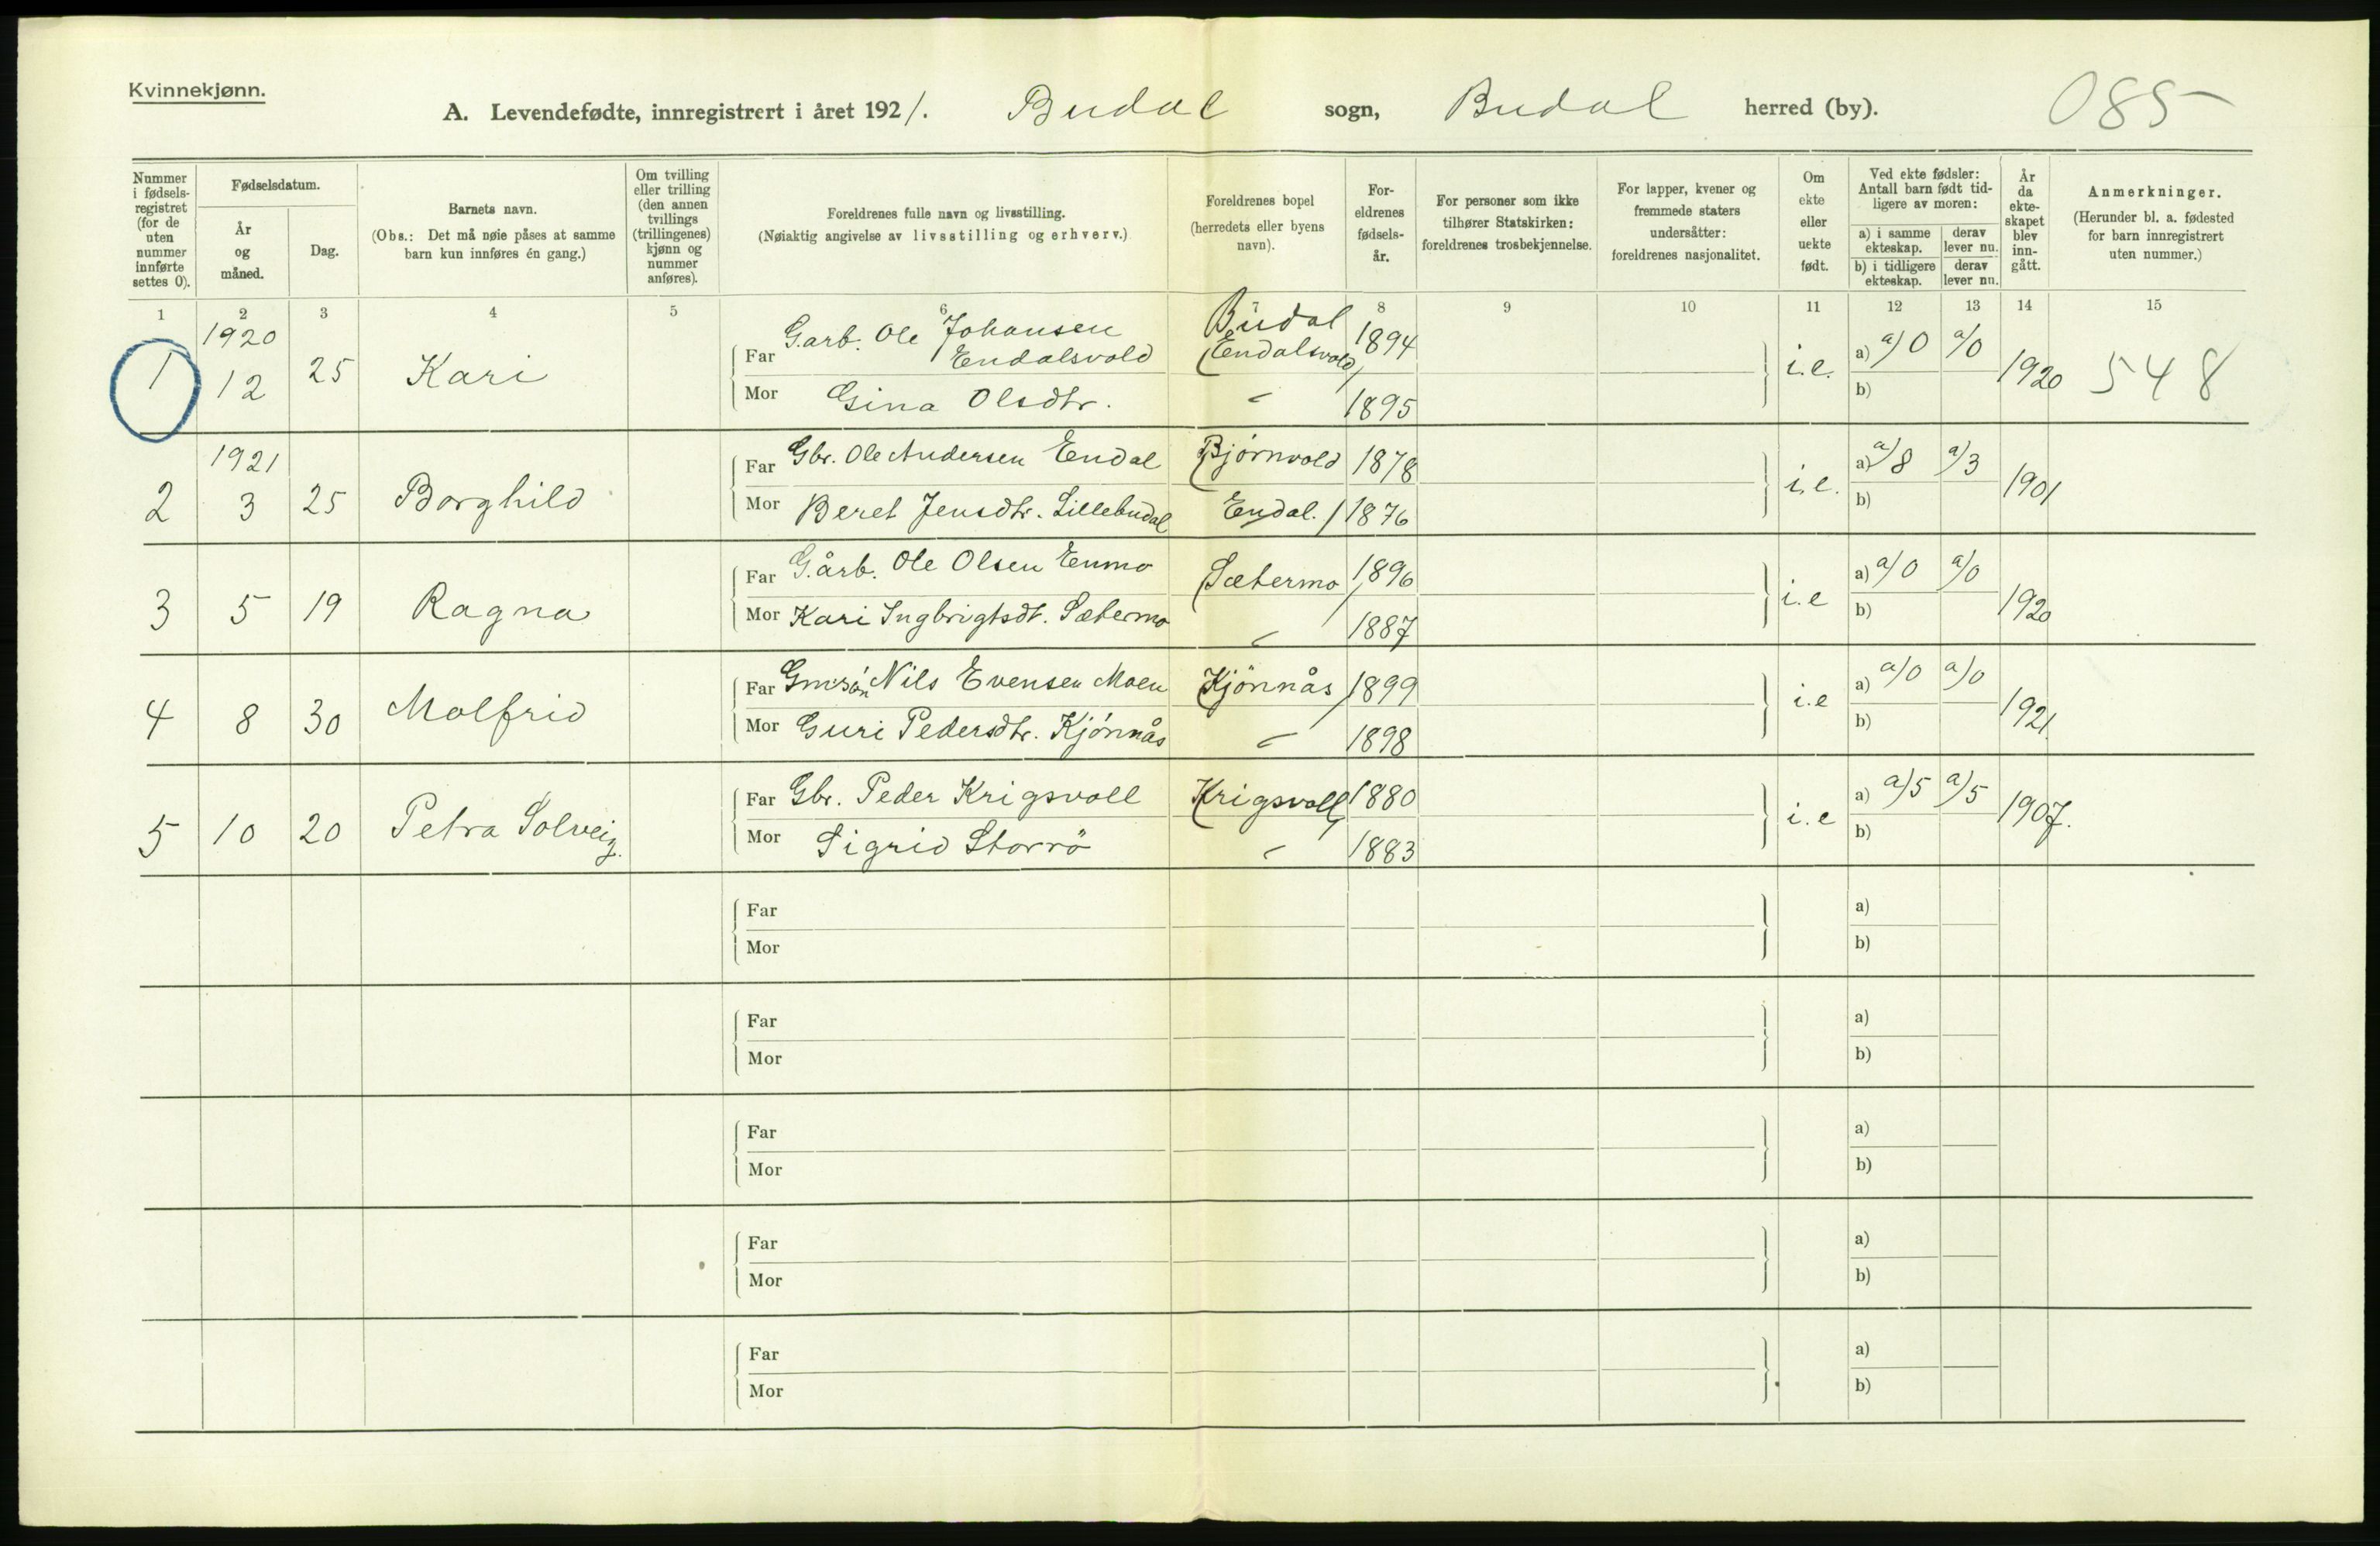 Kvinnekjønn.
A. Levendefødte, innregistrert i året 1921. Budal sogn, Budal herred (by). 085
Nummer i fødsels-registret (for de uten nummer innførte settes 0).
Fødselsdatum.
År og måned.
Dag.
Barnets navn.
(Obs.: Det må nøie påses at samme barn kun innføres én gang.)
Om tvilling eller trilling (den annen tvillings (trillingenes) kjønn og nummer anføres).
Foreldrenes fulle navn og livsstilling.
(Nøiaktig angivelse av livsstilling og erhverv.)
Foreldrenes bopel (herredets eller byens navn).
For-eldrenes fødsels-år.
For personer som ikke tilhører Statskirken: foreldrenes trosbekjennelse.
For lapper, kvener og fremmede staters undersåtter: foreldrenes nasjonalitet.
Om ekte eller uekte født.
Ved ekte fødsler: Antall barn født tid-ligere av moren:
a) i samme ekteskap. derav lever nu.
b) i tidligere ekteskap. derav lever nu.
År da ekte-skapet blev inn-gått.
Anmerkninger.
(Herunder bl. a. fødested for barn innregistrert uten nummer.)
1 2 3 4 5 6 7 8 9 10 11 12 13 14 15
1 1920 12 25 Kari
Far Garb. Ole Johansen Endalsvold Budal Endalsvold 1894 i.e. a) a/0 a/0 1920 548
Mor Gina Olsdtr. " 1895 b)
2 1921 3 25 Borghild
Far Gbr. Ole Andersen Endal Bjørnvold 1878 i.e. a) a/8 a/3 1901
Mor Beret Jensdtr. Lillebudal Endal. 1876 b)
3 5 19 Ragna
Far Gårb. Ole Olsen Enmo Sætermo 1896 i.e a) a/0 a/0 1920
Mor Kari Ingbrigtsdt. Sætermo " 1887 b)
4 8 30 Malfrid
Far Nils Evensen Moen Kjönnås 1899 i.e a) a/0 a/0 1921
Mor Guri Pedersdtr. Kjønnås " 1898 b)
5 10 20 Petra Solveig.
Far Gbr. Peder Krigsvoll Krigsvoll 1880 i.e a) a/5 a/5 1907.
Mor Sigrid Storrö " 1883 b)
Far a)
Mor b)
Far a)
Mor b)
Far a)
Mor b)
Far a)
Mor b)
Far a)
Mor b)